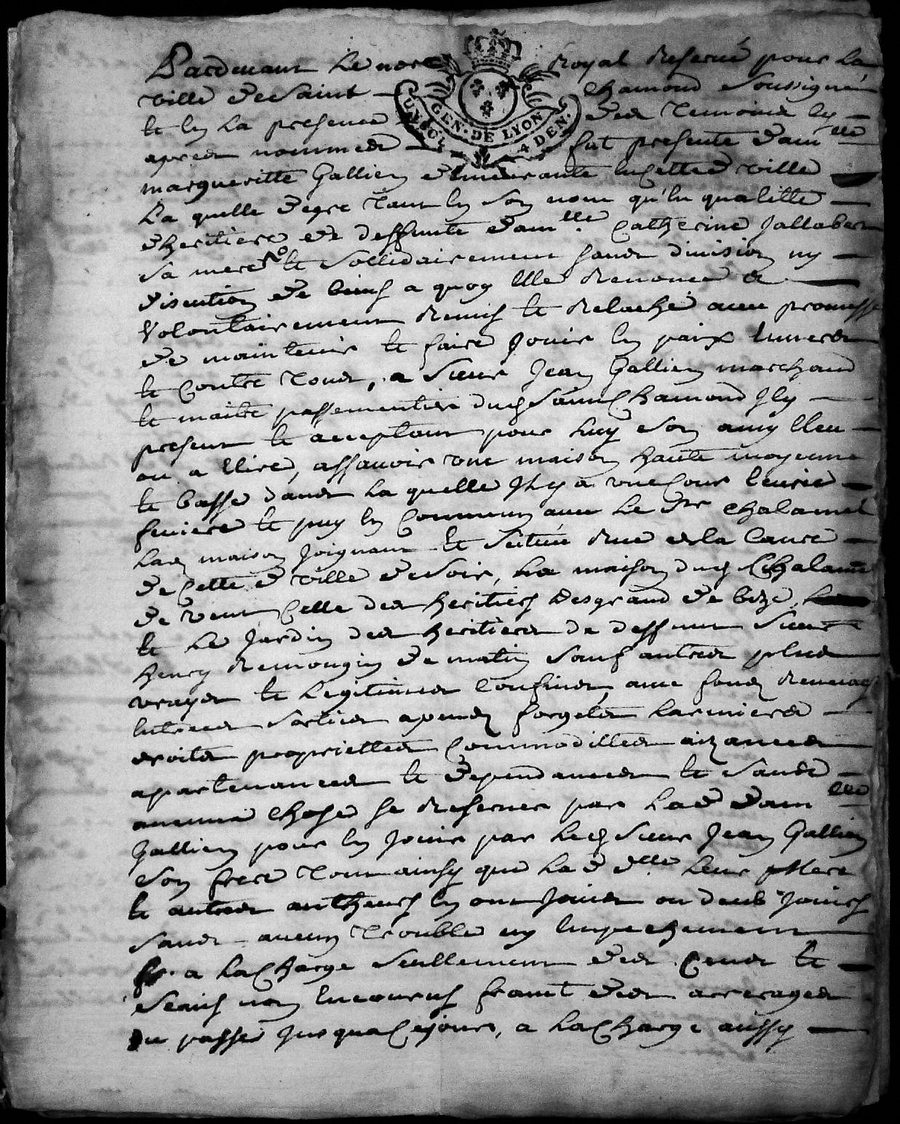 Pardevant Le nore Royal Reservé pour La
ville de Saint Chamond Soussigné
et en La presence des Temoins cy
apres nommés fut presente dam.lle
GEN. DE LYON
4 DEN.
margueritte Gallien demeurante en Cette ville
La quelle de gré tant en son nom qu'en qualitté
d'heritiere de deffunte dam.lle Catherine Jallabert
Sa mere et Sollidairement sans division ny
discution de biens a quoy elle Renonce a
volontairement Remis et Relaché avec promesse
de maintenir et faire Jouir en paix Envers
et Contre Tous, a Sieur Jean Gallien marchand
et maitre passementier dud Saint Chamond Icy
present et acceptant pour luy Son amy Eleu
ou a Elire, assavoir une maison haute moyenne
et basse dans La quelle Il y a une Cour Ecurie
feniere et puy en Commun avec Le Sr Chalamel
Lad maison Joignant et Scituée Rue de la
de Cette ville de Soir, La maison dud Chalamel
de vent Celle des heritiers Desgrand de bize
et Le Jardin des heritiers de deffunt Sieur
henry Remougin de matin Sauf autres plus
vrayes et Legitimes Confins avec fonds
Entrées Sorties apends forgets Larmiers
droits proprietés Commodittés aizances
apartenances et dependances et Sans
aucune Chose Se Reserver par Lad dam.lle
Gallien pour en Jouir par Led Sieur Jean Gallien
Son frere Tout ainsy que Lad d.lle Leur Mere
et autres autheurs en ont Jouis ou deub Jouir
Sans aucun Trouble ny Empechement
a La Charge Seullement des Cens et
Servis non Encourus franct des arrerages
du passé Jusqu'a Ce jour, a La Charge aussy